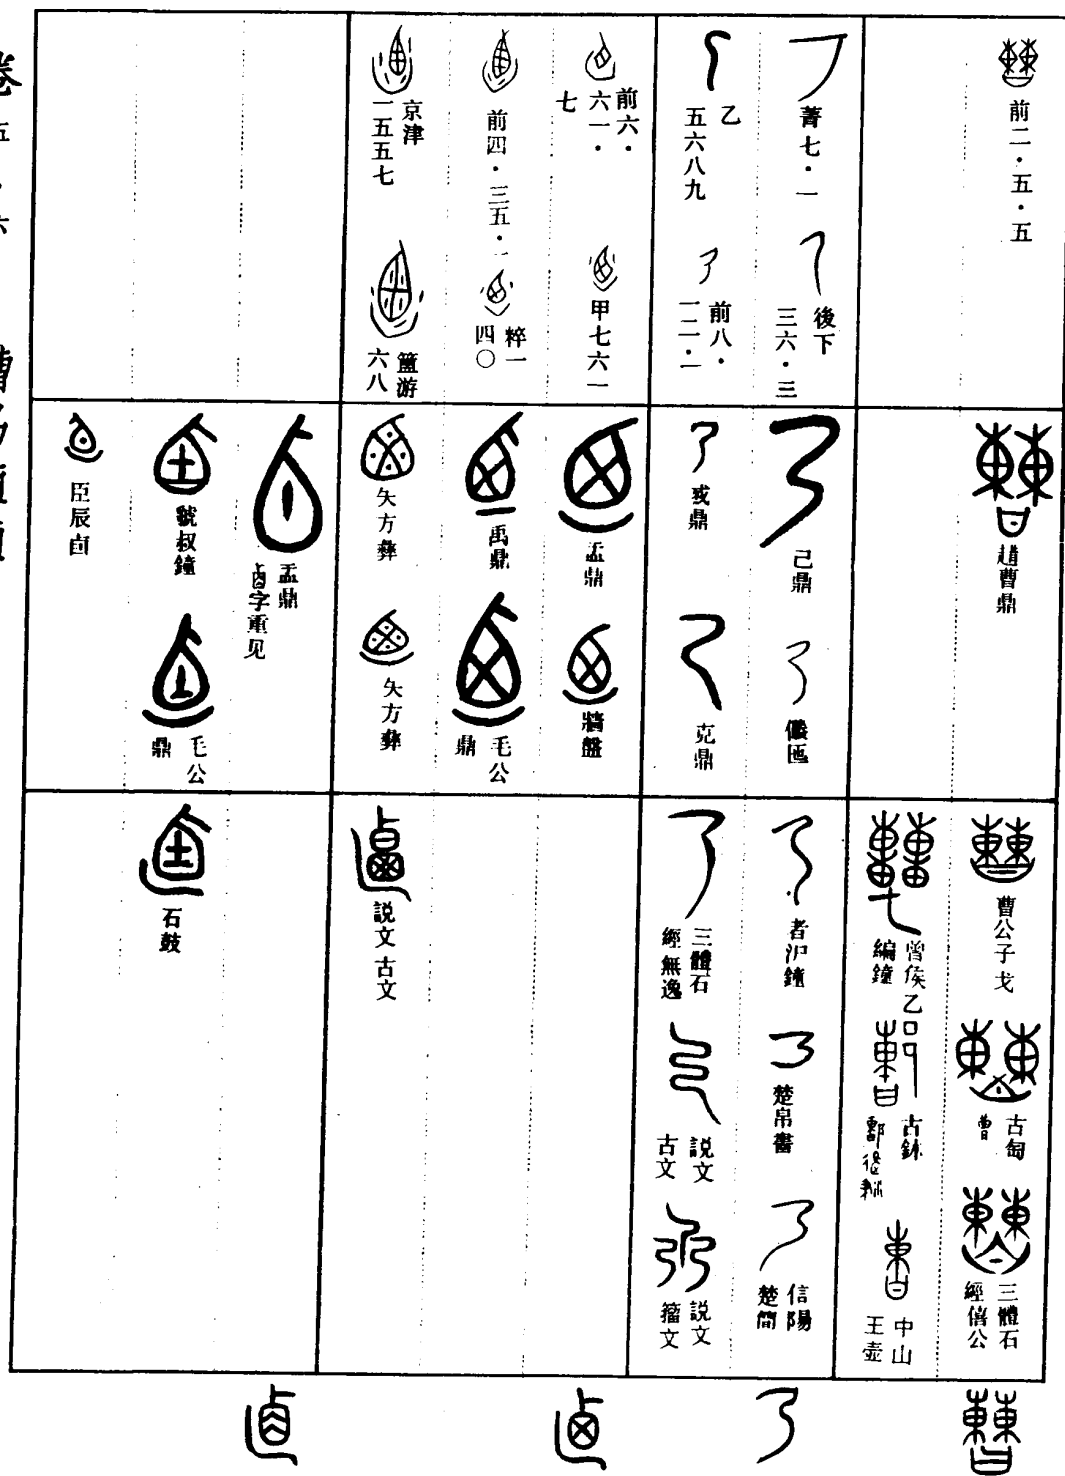 前二·五·五
菁七·一
後下三六·三
乙五六八九
前八·一二·一
前六·六一·七
甲七六一
前四·三五·一
粹一四〇
京津一五五七
簠游六八
趙曹鼎
己鼎
儼匜
或鼎
克鼎
盂鼎
牆盤
禹鼎
毛公鼎
矢方彝
矢方彝
盂鼎
卣字重见
虢叔鐘
毛公鼎
臣辰卣
曹公子戈
古匋
曹
三體石經僖公
曾侯乙編鐘
古鉩
中山王壺
者沪鐘
楚帛書
信陽楚簡
三體石經無逸
説文古文
説文籀文
説文古文
石鼓
卷五·六
曹乃